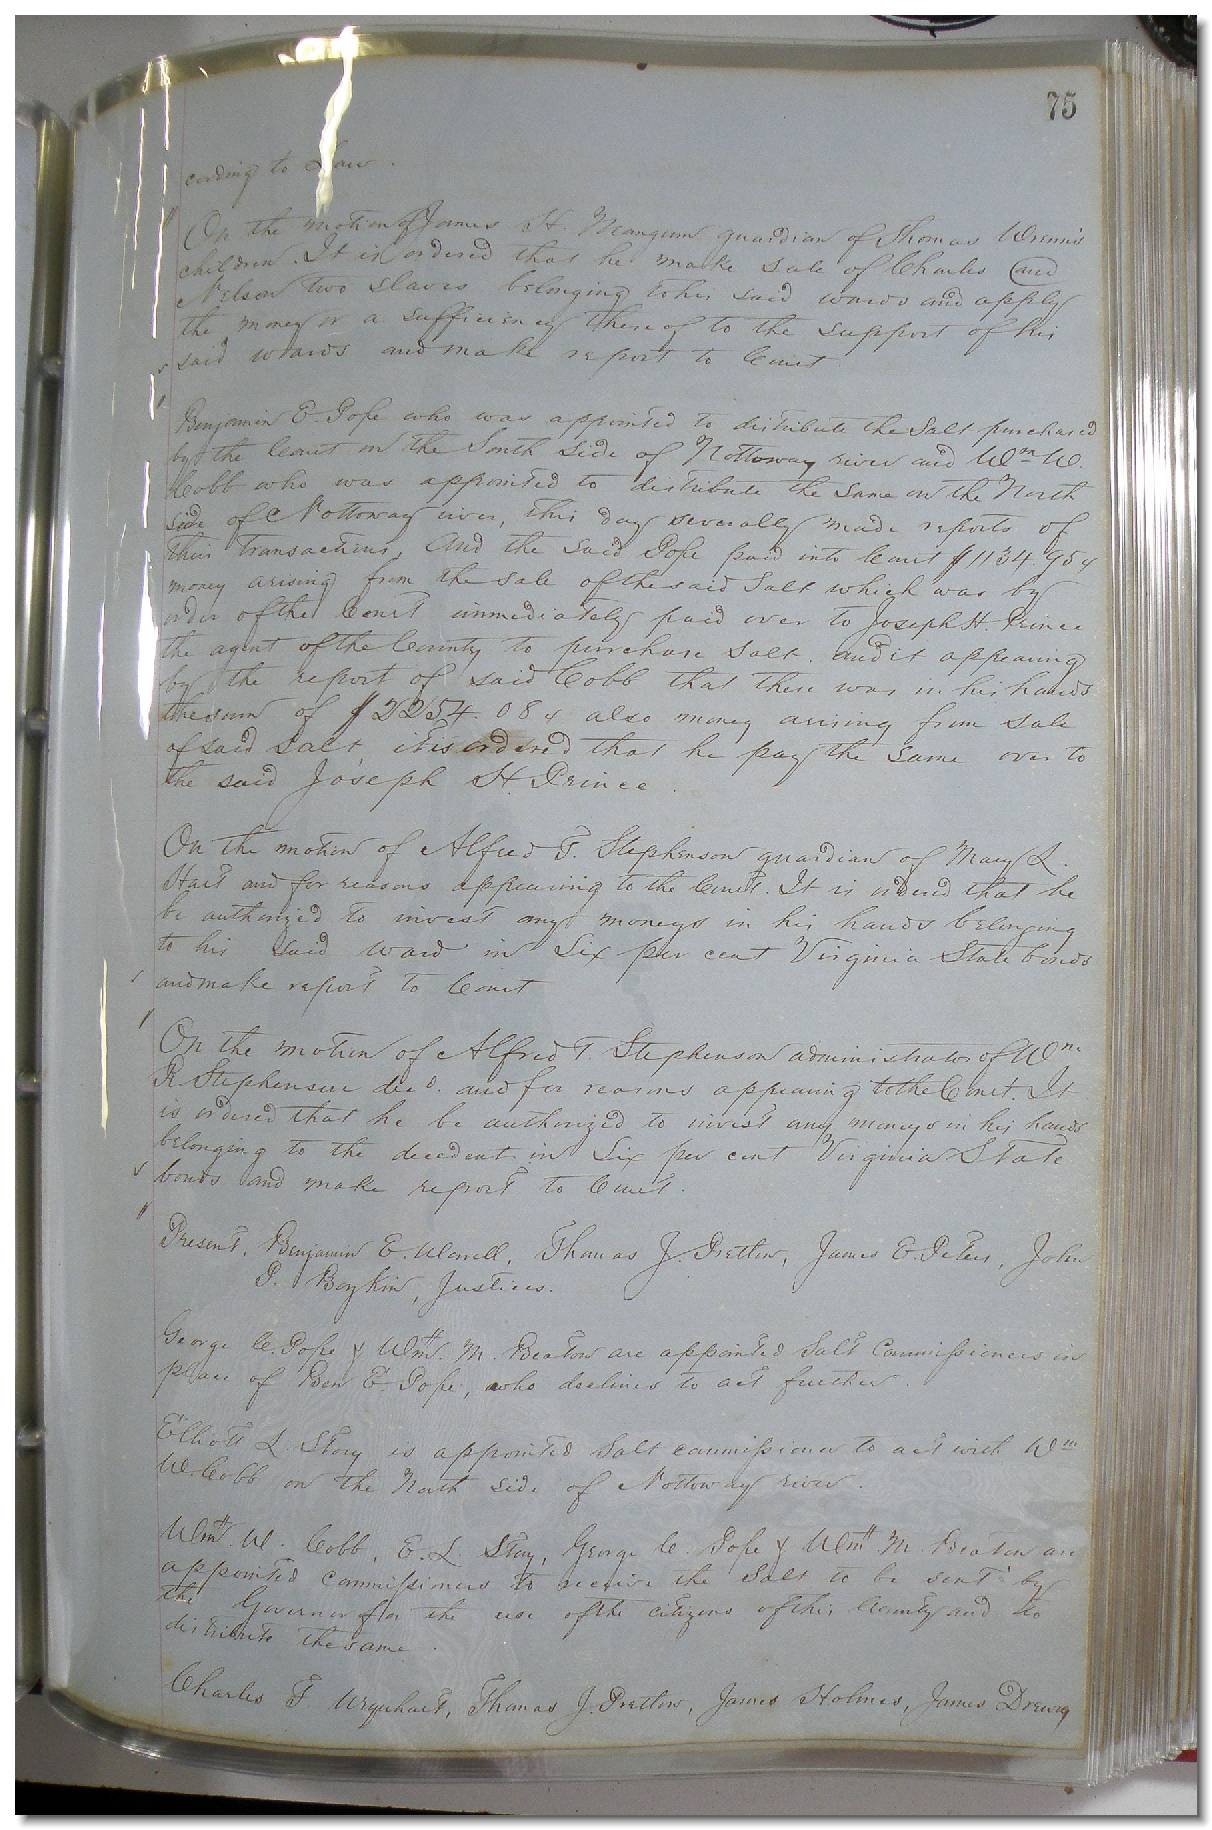 75
cording to Law.
On the motion of James H. Mangum guardian of Thomas Wrenn's
children. It is ordered that he make sale of Charles and
Nelson two slaves belonging to his said wards and apply
the money or a sufficiency thereof to the support of his
said wards and make report to Court
Benjamin E. Pope who was appointed to distribute the Salt purchased
by the Court on the South Side of Nottoway river and Wm W.
Cobb who was appointed to distribute the same on the North
side of Nottoway river, this day severally made reports of
their transactions, And the said Pope paid into Court $1134.95
money arising from the sale of the said Salt which was by
order of the Court immediately paid over to Joseph H. Prince
the agent of the County to purchase Salt. and it appearing
by the report of said Cobb that there was in his hands
the sum of $2254.08 also money arising from sale
of said Salt, it is ordered that he pay the same over to
the said Joseph H. Prince.
On the motion of Alfred T. Stephenson guardian of Mary L.
Hart and for reasons appearing to the Court. It is ordered that he
be authorized to invest any moneys in his hands belonging
to his said ward in Six per cent Virginia State bonds
and make report to Court
On the motion of Alfred T. Stephenson administrator of Wm.
R. Stephenson decd. and for reasons appearing to the Court. It
is ordered that he be authorized to invest any moneys in his hands
belonging to the decedent in Six per cent Virginia State
bonds and make report to Court.
Present, Benjamin E. Worrell, Thomas J. Pretlow, James E. Peters, John
P. Boykin, Justices.
George C. Pope & Wm. M. Beaton are appointed Salt Commissioners in
place of Ben E. Pope, who declines to act further.
Elliott L. Story is appointed Salt commissioner to act with Wm
W. Cobb on the North side of Nottoway river.
Wm. W. Cobb, E. L. Story, George C. Pope & Wm M. Beaton are
appointed commissioners to receive the Salt to be sent by
the Governor for the use of the citizens of this County and to
distribute the same.
Charles F. Urquhart, Thomas J. Pretlow, James Holmes, James Drewry